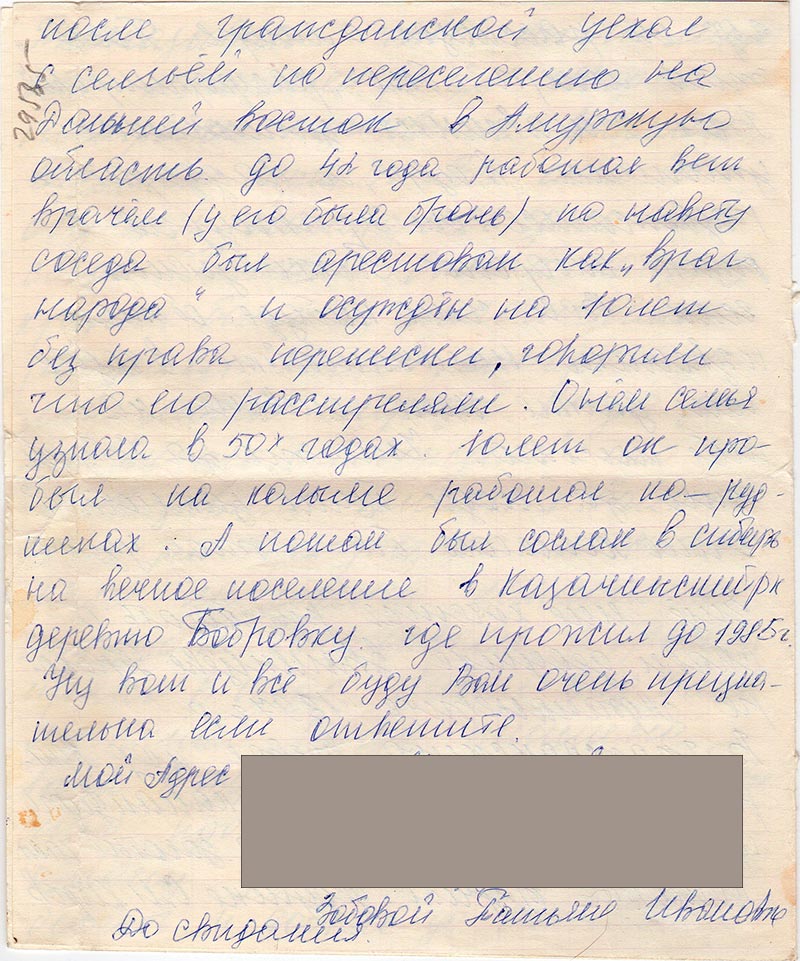 после гражданской уехал
с семьёй по переселению на
Дальний восток в Амурскую
область. до 42 года работал вет
врачём (у его была бронь) по навету
соседа был арестован как „враг
народа“ и осуждён на 10 лет
без права переписки, говорили
что его расстреляли. О нём семья
узнала в 50х годах. 10 лет он про-
был на колыме работал на руд-
никах. А потом был сослан в сибирь
на вечное поселение в Казачинский рн
деревню Бобровку. где прожил до 1985г.
Ну вот и всё буду Вам очень призна-
тельна если ответите.
мой Адрес
Зобовой Татьяне Ивановне
До свидания.
29535